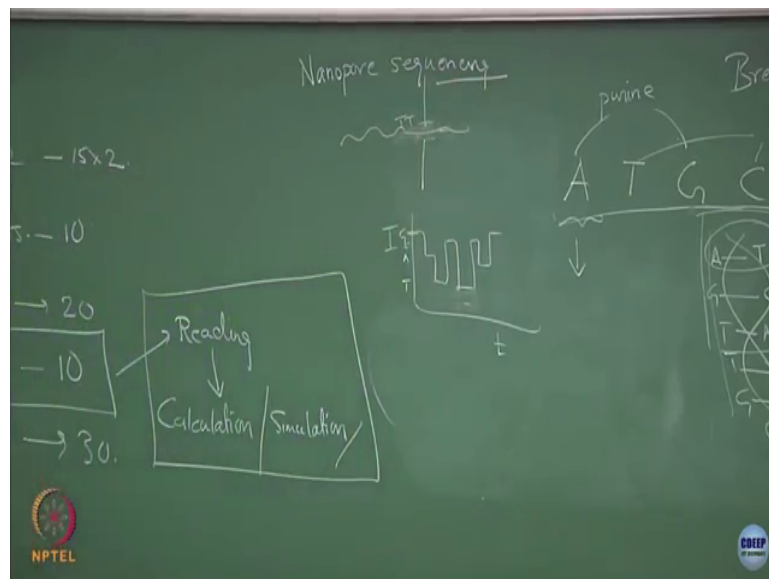 Nanopore sequencing
purine
Bre
A T G C
— 15x2.
— 10
→ 20
— 10
→ 30.
Reading
Calculation / Simulation /
I
G
A
T
t
A — T
G —
T — A
T —
G —
NPTEL
CDEEP
IIT BOMBAY